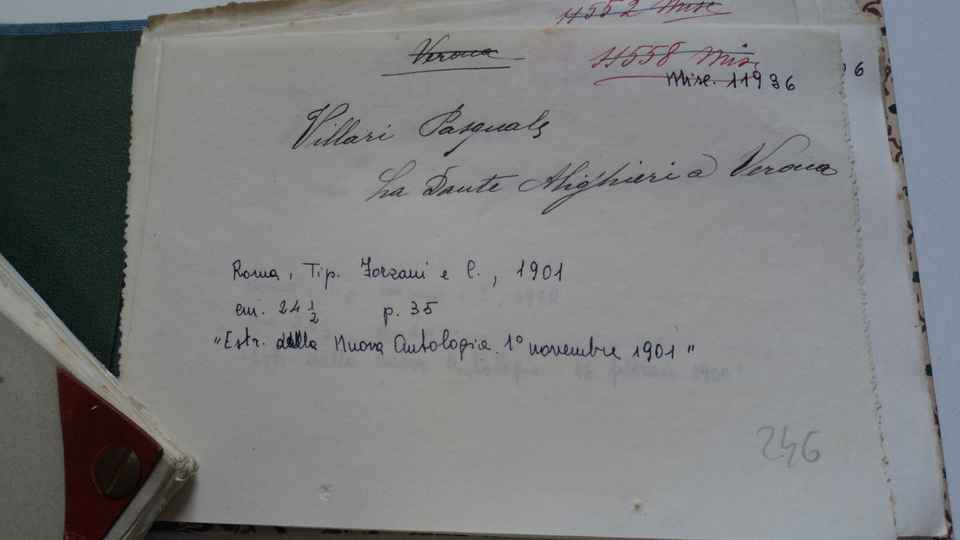 11552 Misc
Verona
11558 Misc.
Misc. 11936
6
Villari Pasquale
La Dante Alighieri a Verona
Roma, Tip. Forzani e C., 1901
cm. 24 1/2 p. 35
"Estr. dalla Nuova Antologia. 1° novembre 1901"
246